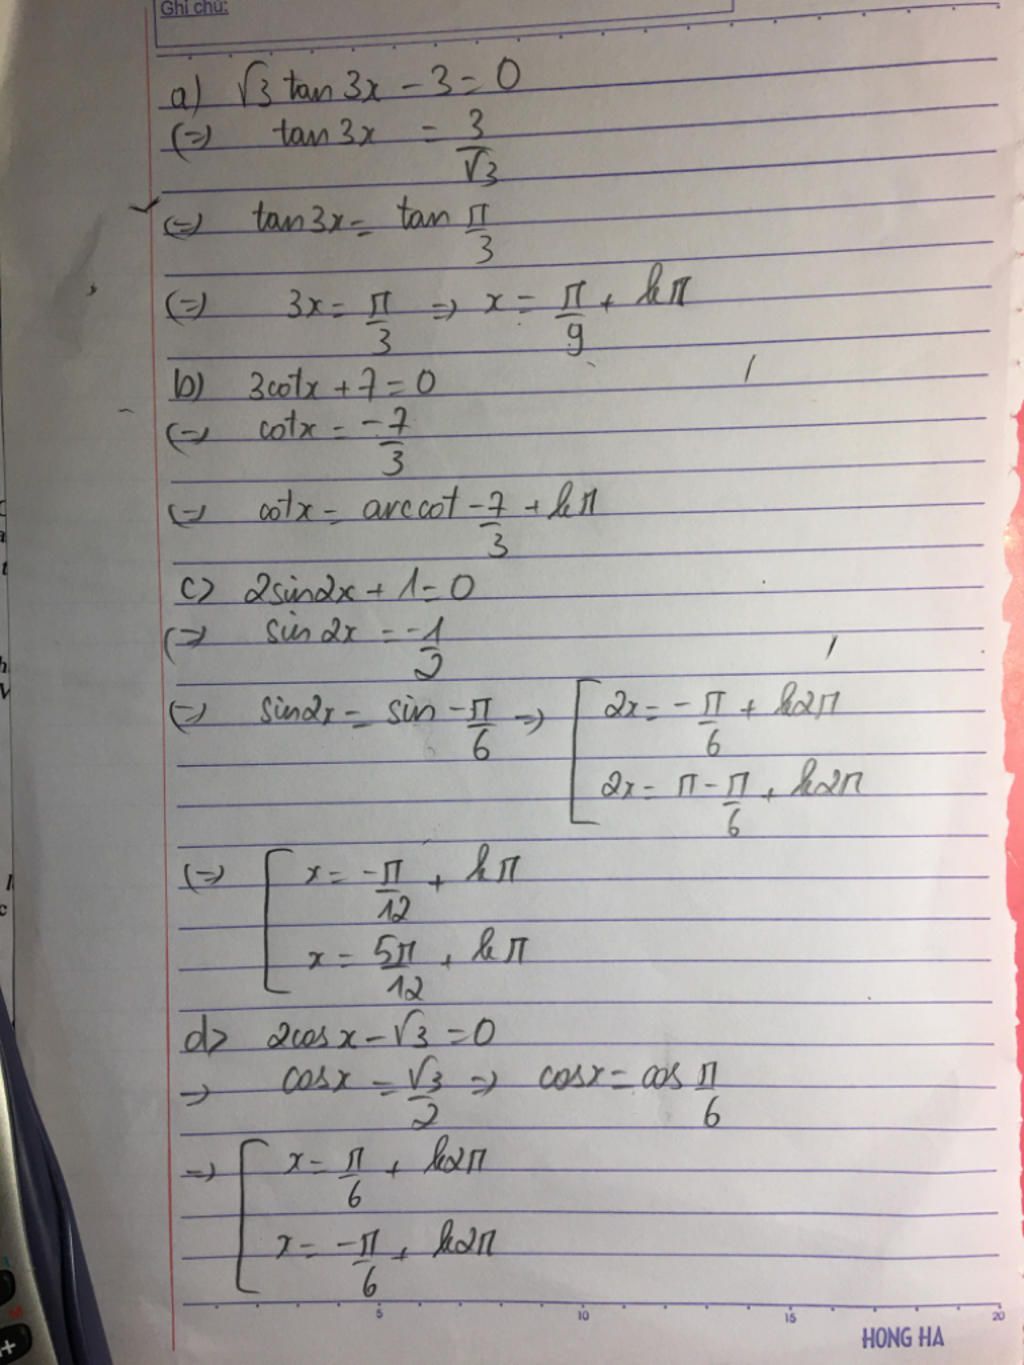 Ghi chú:
a) √3 tan 3x - 3 = 0
(=) tan 3x = 3/√3
(=) tan 3x = tan π/3
(=) 3x = π/3 => x = π/9 + kπ
b) 3cotx + 7 = 0
(=) cotx = -7/3
(=) cotx = arccot -7/3 + kπ
c) 2sin2x + 1 = 0
(=) sin 2x = -1/2
(=) sin2x = sin -π/6 => [ 2x = -π/6 + k2π
2x = π - π/6 + k2π
(=) [ x = -π/12 + kπ
x = 5π/12 + kπ
d) 2cosx - √3 = 0
=> cosx = √3/2 => cosx = cos π/6
=> [ x = π/6 + k2π
x = -π/6 + k2π
5 10 15 20
HONG HA